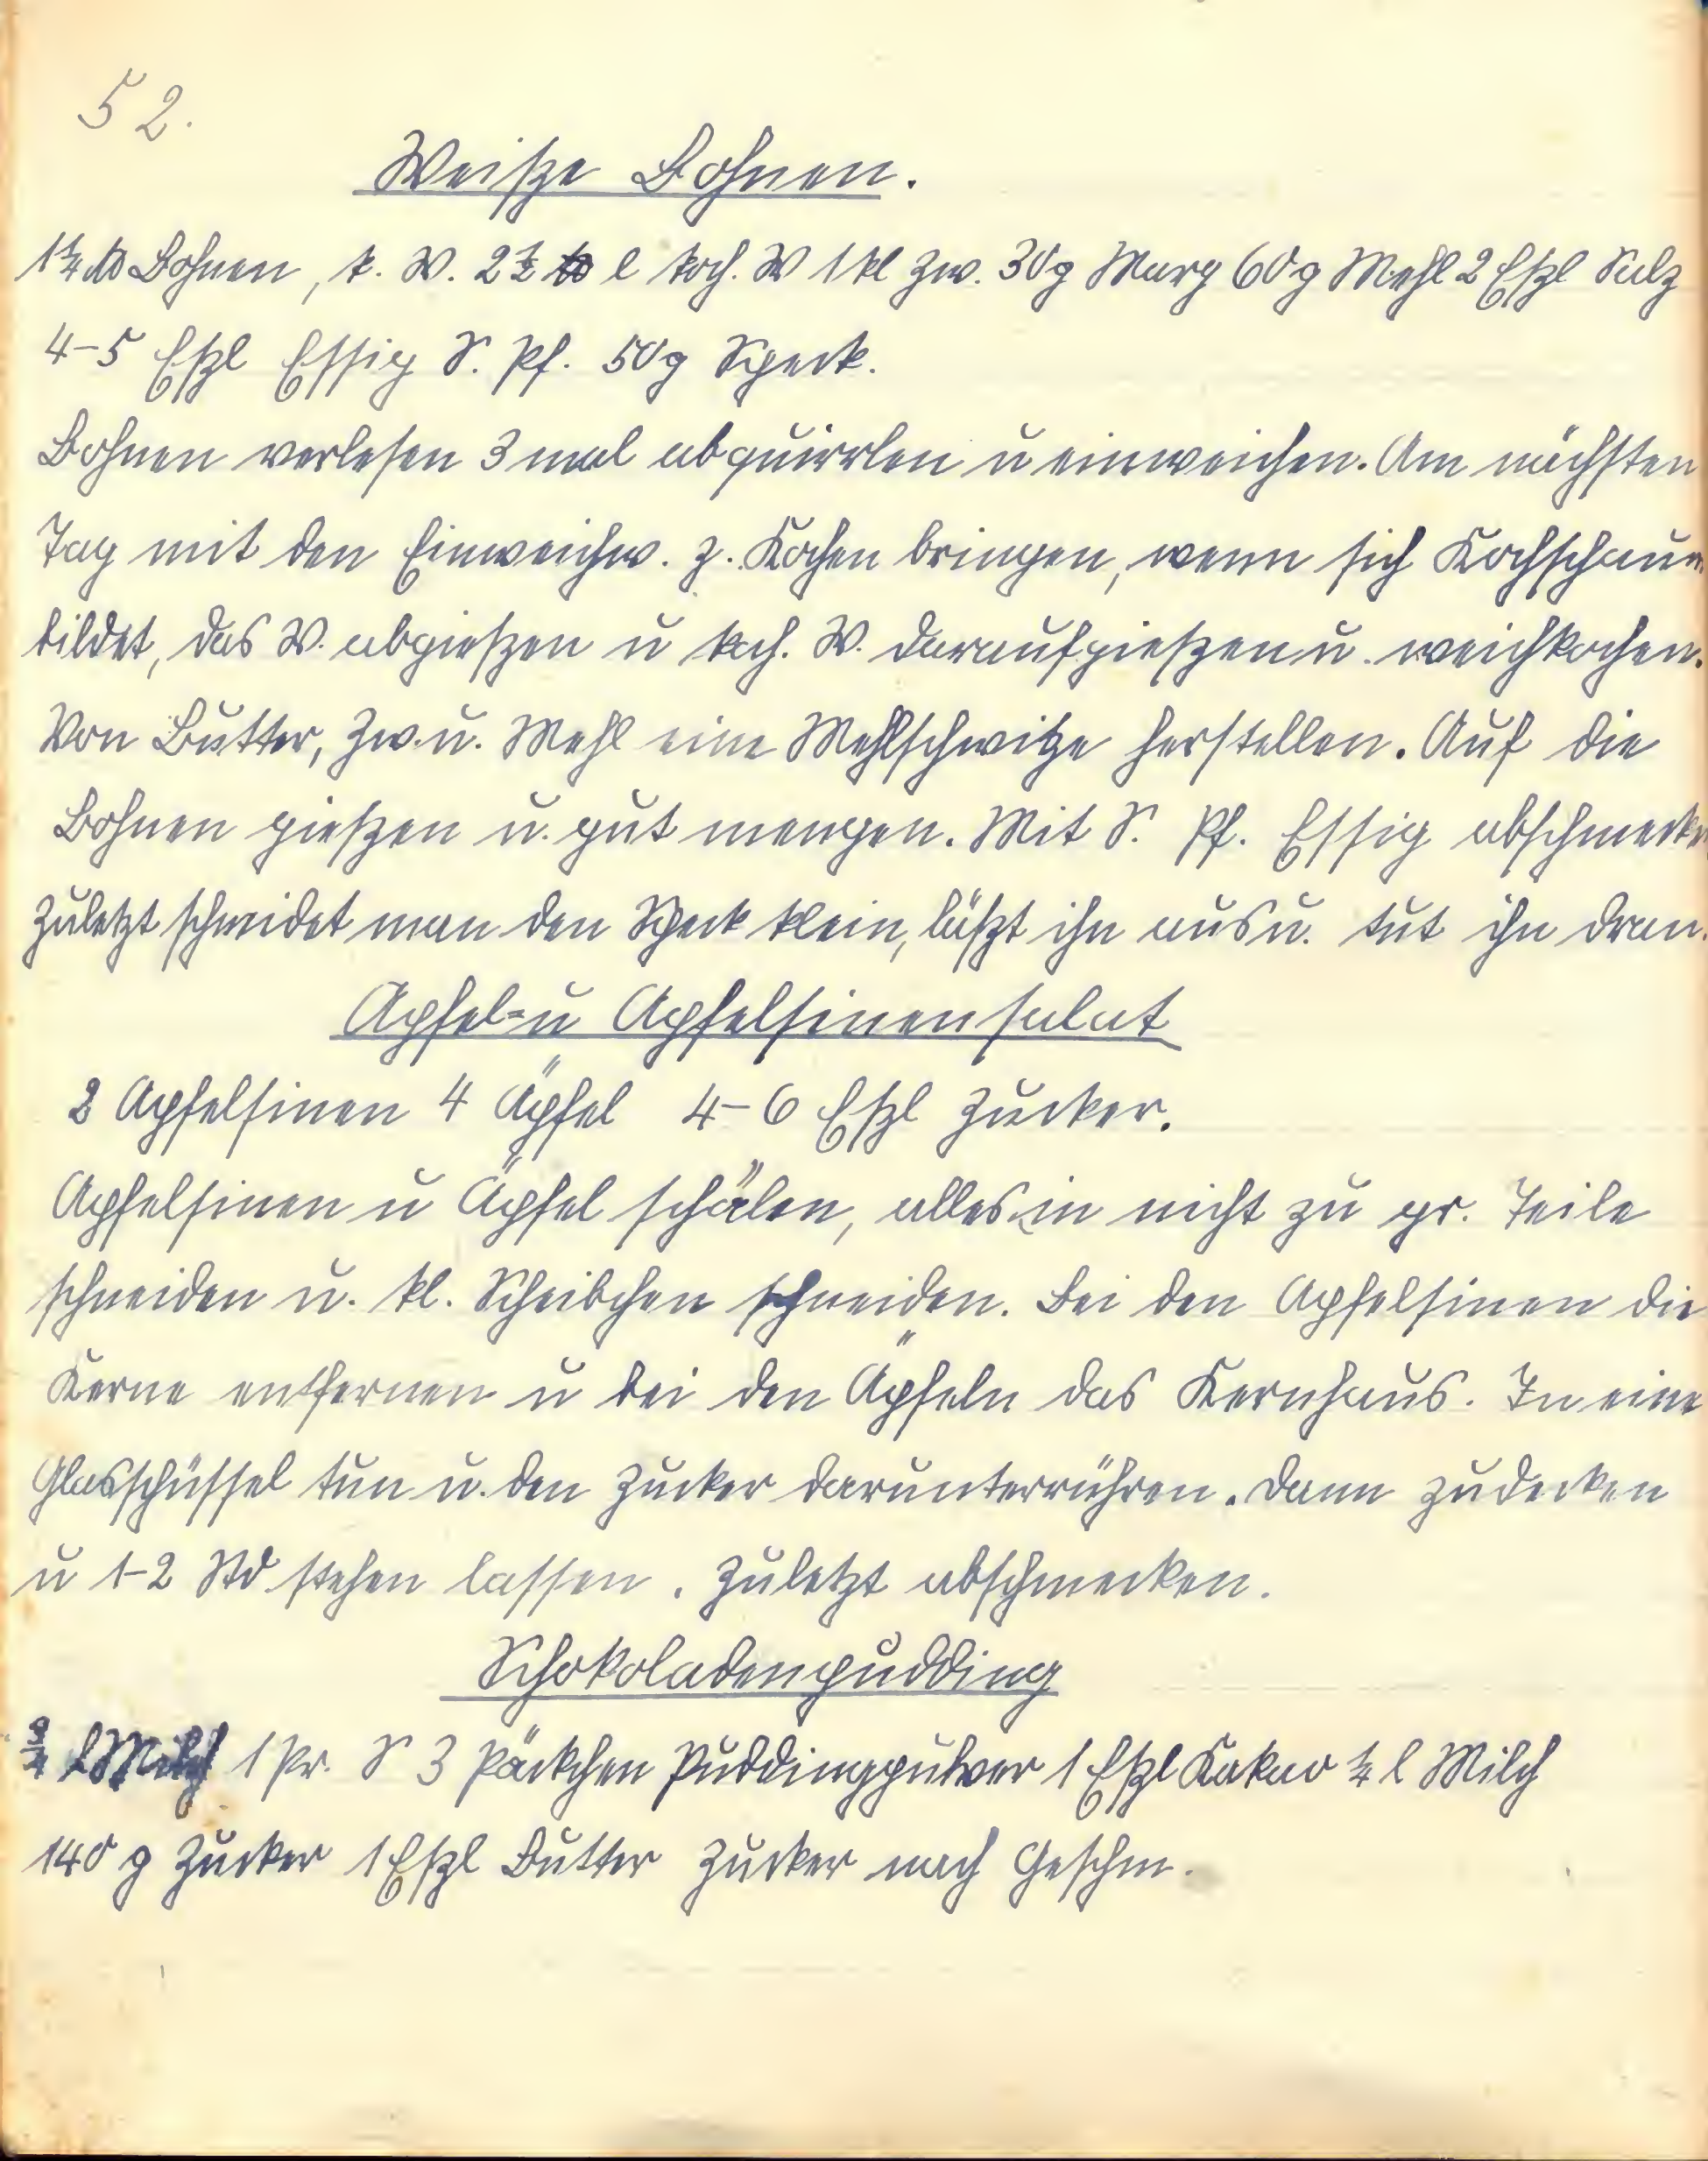 52.
Weiße Bohnen.
1¼ ℔ Bohnen, k. W. 2½ l koch. W 1 kl Zw. 30g Marg 60g Mehl 2 Eßl Salz
4-5 Eßl Essig S. Pf. 50g Speck.
Bohnen verlesen 3 mal abquirrlen u einweichen. Am nächsten
Tag mit den Einweichw. z. Kochen bringen, wenn sich Kochschaum
bildet, das W. abgießen u koch. W. daraufgießen u. weichkochen.
Von Butter, Zw. u. Mehl eine Mehlschwitze herstellen. Auf die
Bohnen gießen u. gut mengen. Mit S. Pf. Essig abschmecken
Zuletzt schneidet man den Speck klein, läßt ihn aus u. tut ihn dran.
Apfel- u Apfelsinensalat
2 Apfelsinen 4 Äpfel 4-6 Eßl Zucker.
Apfelsinen u Äpfel schälen, alles in nicht zu gr. Teile
schneiden u. kl. Scheibchen schneiden. Bei den Apfelsinen die
Kerne entfernen u bei den Äpfeln das Kernhaus. In eine
Glasschüssel tun u. den Zucker darunterrühren. Dann zudecken
u 1-2 Std stehen lassen. Zuletzt abschmecken.
Schokoladenpudding
¾ l Milch 1 Pr. S 3 Päckchen Puddingpulver 1 Eßl Kakao ¼ l Milch
140 g Zucker 1 Eßl Butter Zucker nach Geschm.